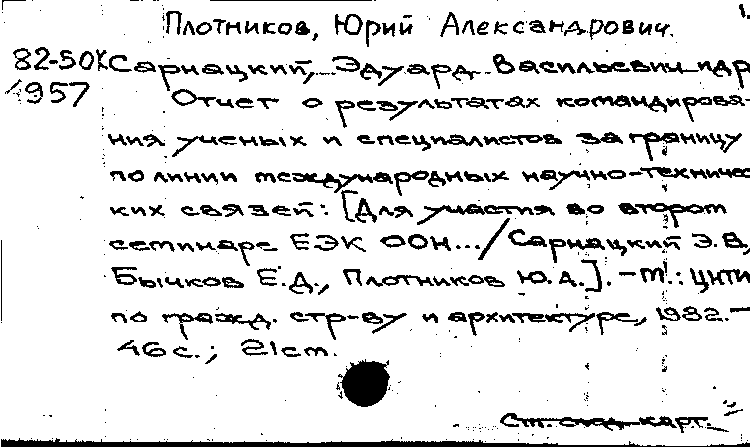 1.
Плотников, Юрий Александрович.
82-50К Сарнацкий, Эдуард Васильевич и др
4957 Отчет о результатах командирова-
ния ученых и специалистов за границу
по линии международных научно-техничес
ких связей: [Для участия во втором
семинаре ЕЭК ООН... / Сарнацкий Э.В.,
Бычков Е.Д., Плотников Ю.А.]. - М.: ЦНТИ
по гражд. стр-ву и архитектуре, 1982. -
46 с.; 21 см.
См. след. карт.